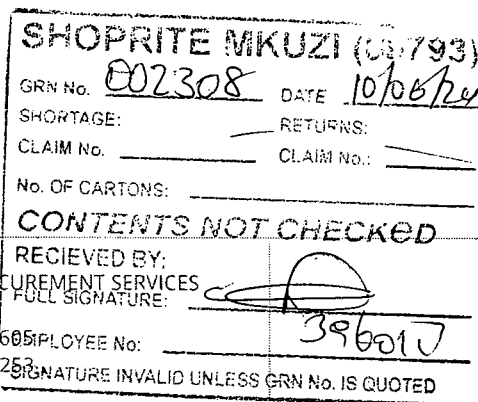 SHOPRITE MKUZI
GRN No. 002308 DATE 10/06/24
SHORTAGE: RETURNS:
CLAIM No. CLAIM No.:
No. OF CARTONS:
CONTENTS NOT CHECKED
RECIEVED BY:
CUREMENT SERVICES
FULL SIGNATURE:
EMPLOYEE No: 39601J
SIGNATURE INVALID UNLESS GRN No. IS QUOTED